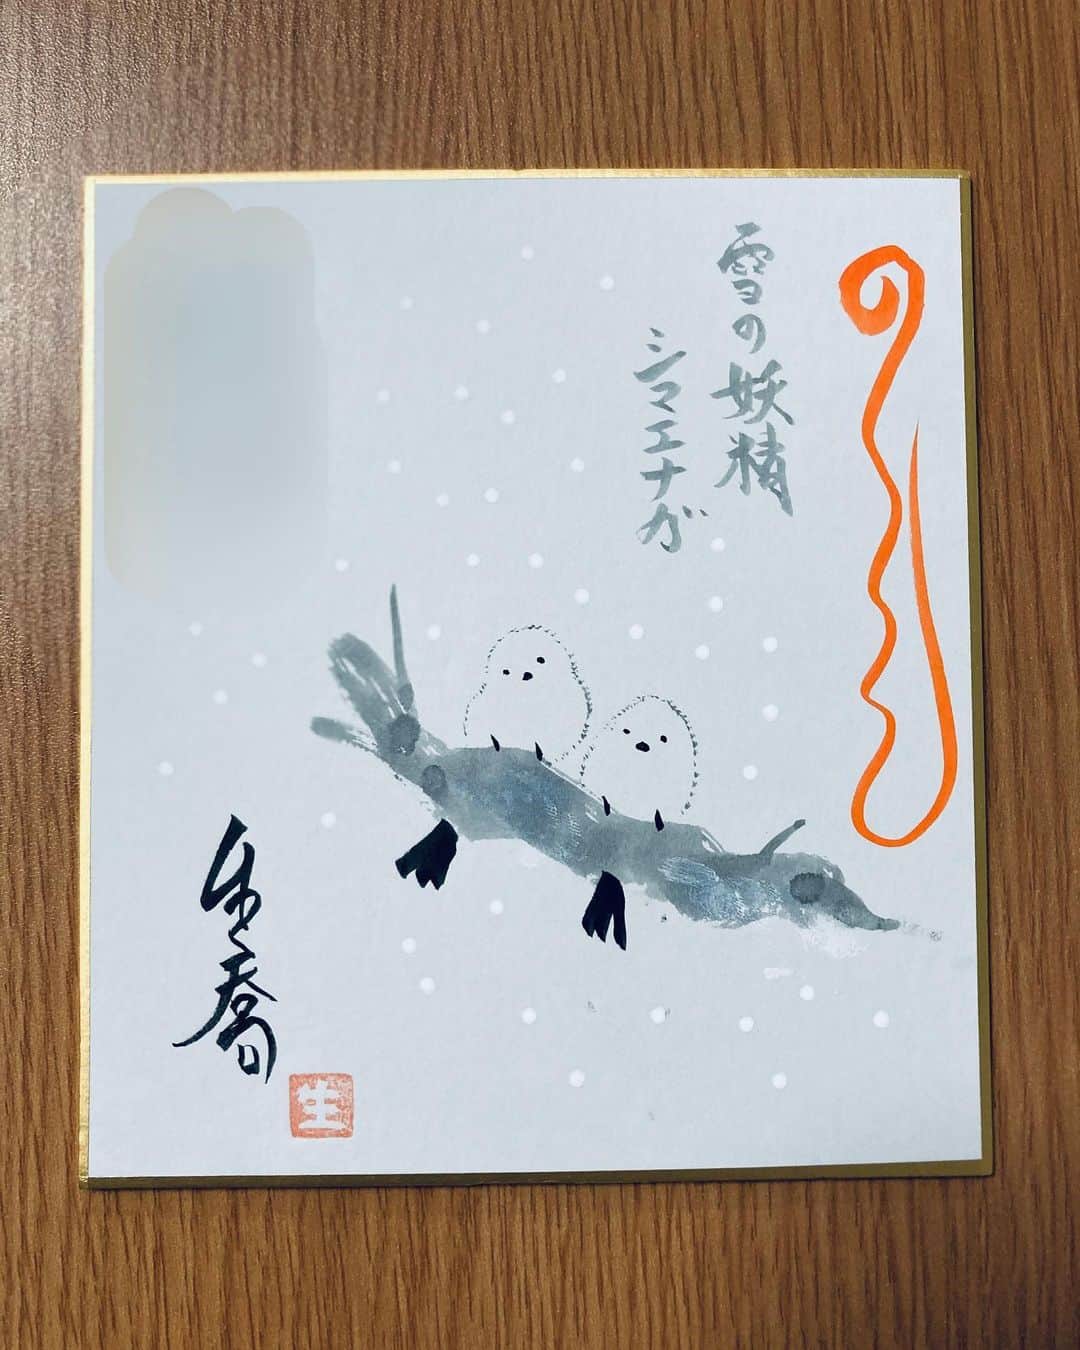 雪の妖精
シマエナガ
生